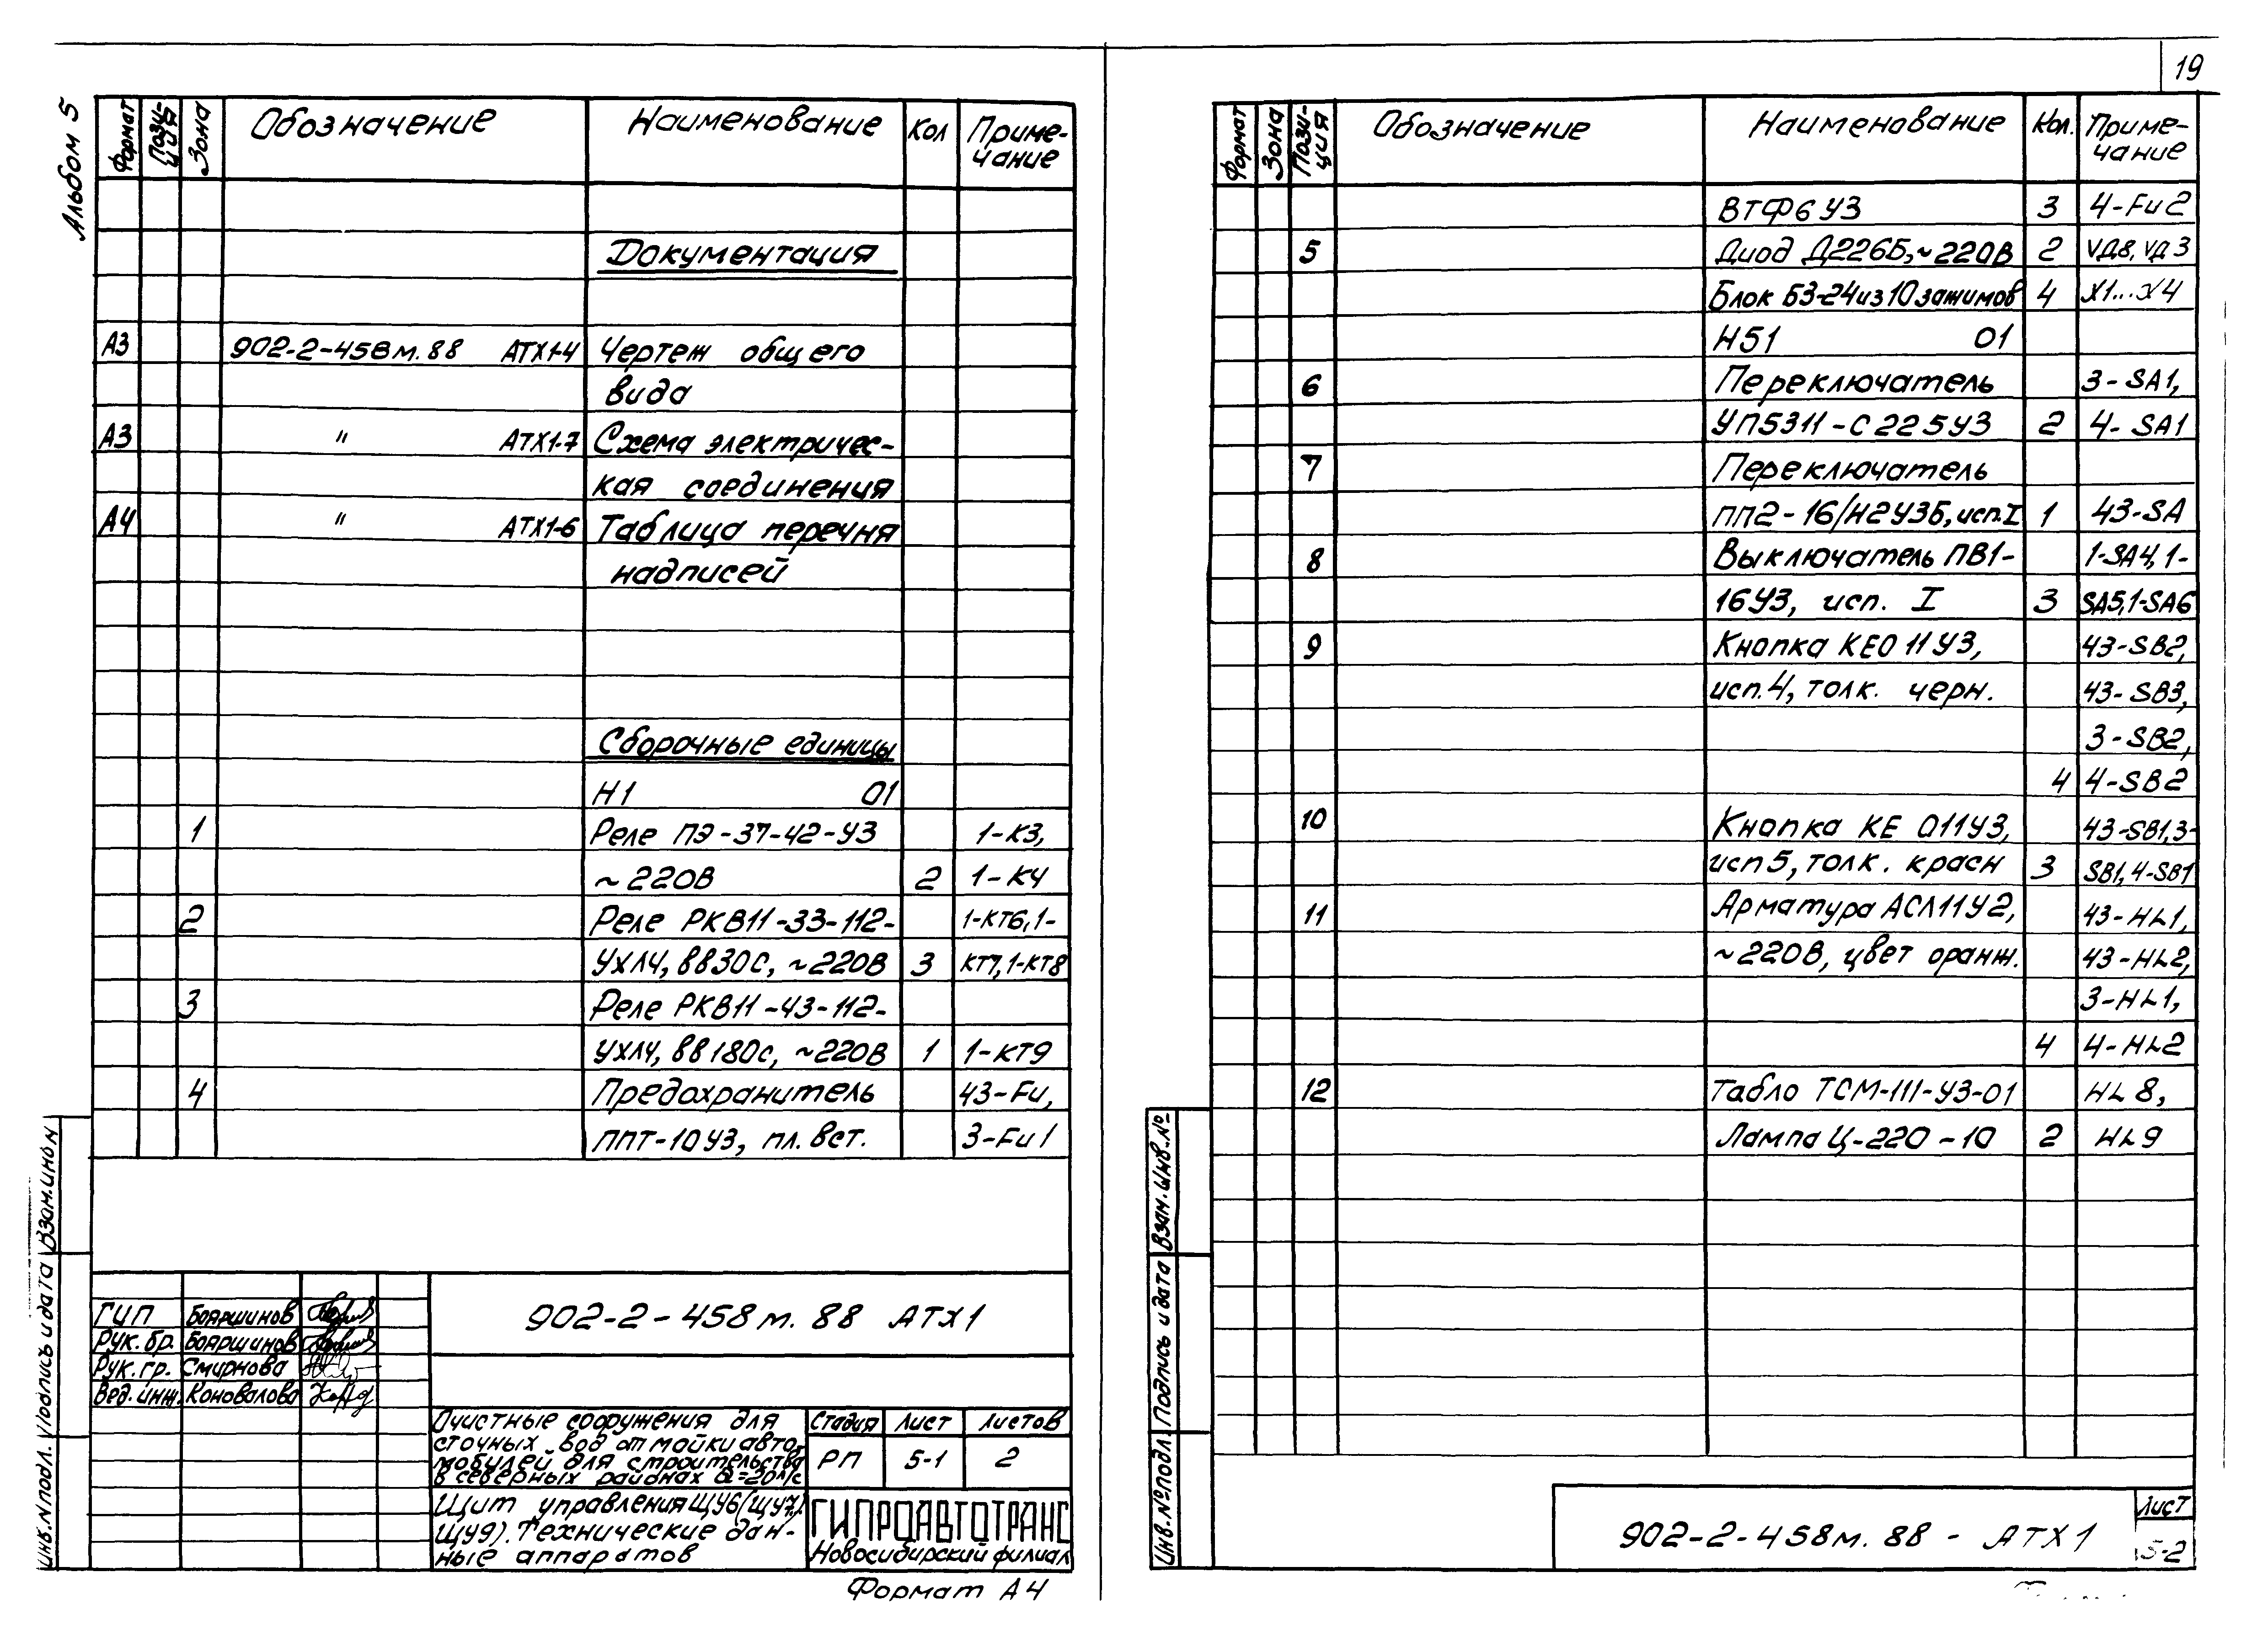 19
Альбом 5
Формат Пози-ция Зона Обозначение Наименование Кол Приме-чание
Документация
А3 902-2-458м.88 АТХ1-4 Чертеж общего
вида
А3 " АТХ1-7 Схема электричес-
кая соединения
А4 " АТХ1-6 Таблица перечня
надписей
Сборочные единицы
Н1 01
1 Реле ПЭ-37-42-У3 1-К3,
~220В 2 1-К4
2 Реле РКВ11-33-112- 1-КТ6,1-
УХЛ4, вв30с, ~220В 3 КТ7,1-КТ8
3 Реле РКВ11-43-112-
УХЛ4, вв180с, ~220В 1 1-КТ9
4 Предохранитель 43-Fu,
ППТ-10У3, пл. вст. 3-Fu1
Инв.N подл. Подпись и дата Взам.инв.N
902-2-458м.88 АТХ1
ГИП Бояршинов
Рук.бр. Бояршинов
Рук.гр. Смирнова
Вед.инж. Коновалова
Очистные сооружения для
сточных вод от мойки авто-
мобилей для строительства
в северных районах Q=20л/с
Стадия Лист Листов
РП 5-1 2
Щит управления ЩУ6(ЩУ7,
ЩУ9). Технические дан-
ные аппаратов
ГИПРОАВТОТРАНС
Новосибирский филиал
Формат А4
Формат Зона Пози-ция Обозначение Наименование Кол. Приме-чание
ВТФ6У3 3 4-Fu2
5 Диод Д226Б,~220В 2 VД8, VД3
Блок Б3-24из10зажимов 4 Х1...Х4
Н51 01
6 Переключатель 3-SA1,
УП5311-С225У3 2 4-SA1
7 Переключатель
ПП2-16/Н2У3Б, исп.I 1 43-SA
8 Выключатель ПВ1- 1-SA4,1-
16У3, исп. I 3 SA5,1-SA6
9 Кнопка КЕ011У3, 43-SB2,
исп.4, толк. черн. 43-SB3,
3-SB2,
4 4-SB2
10 Кнопка КЕ 011У3, 43-SB1,3-
исп5, толк. красн 3 SB1,4-SB1
11 Арматура АСЛ11У2, 43-HL1,
~220В, цвет оранж. 43-HL2,
3-HL1,
4 4-HL2
12 Табло ТСМ-III-У3-01 HL8,
Лампа Ц-220-10 2 HL9
Инв.№подл. Подпись и дата Взам.инв.№
902-2-458м.88 - АТХ1
Лист
5-2